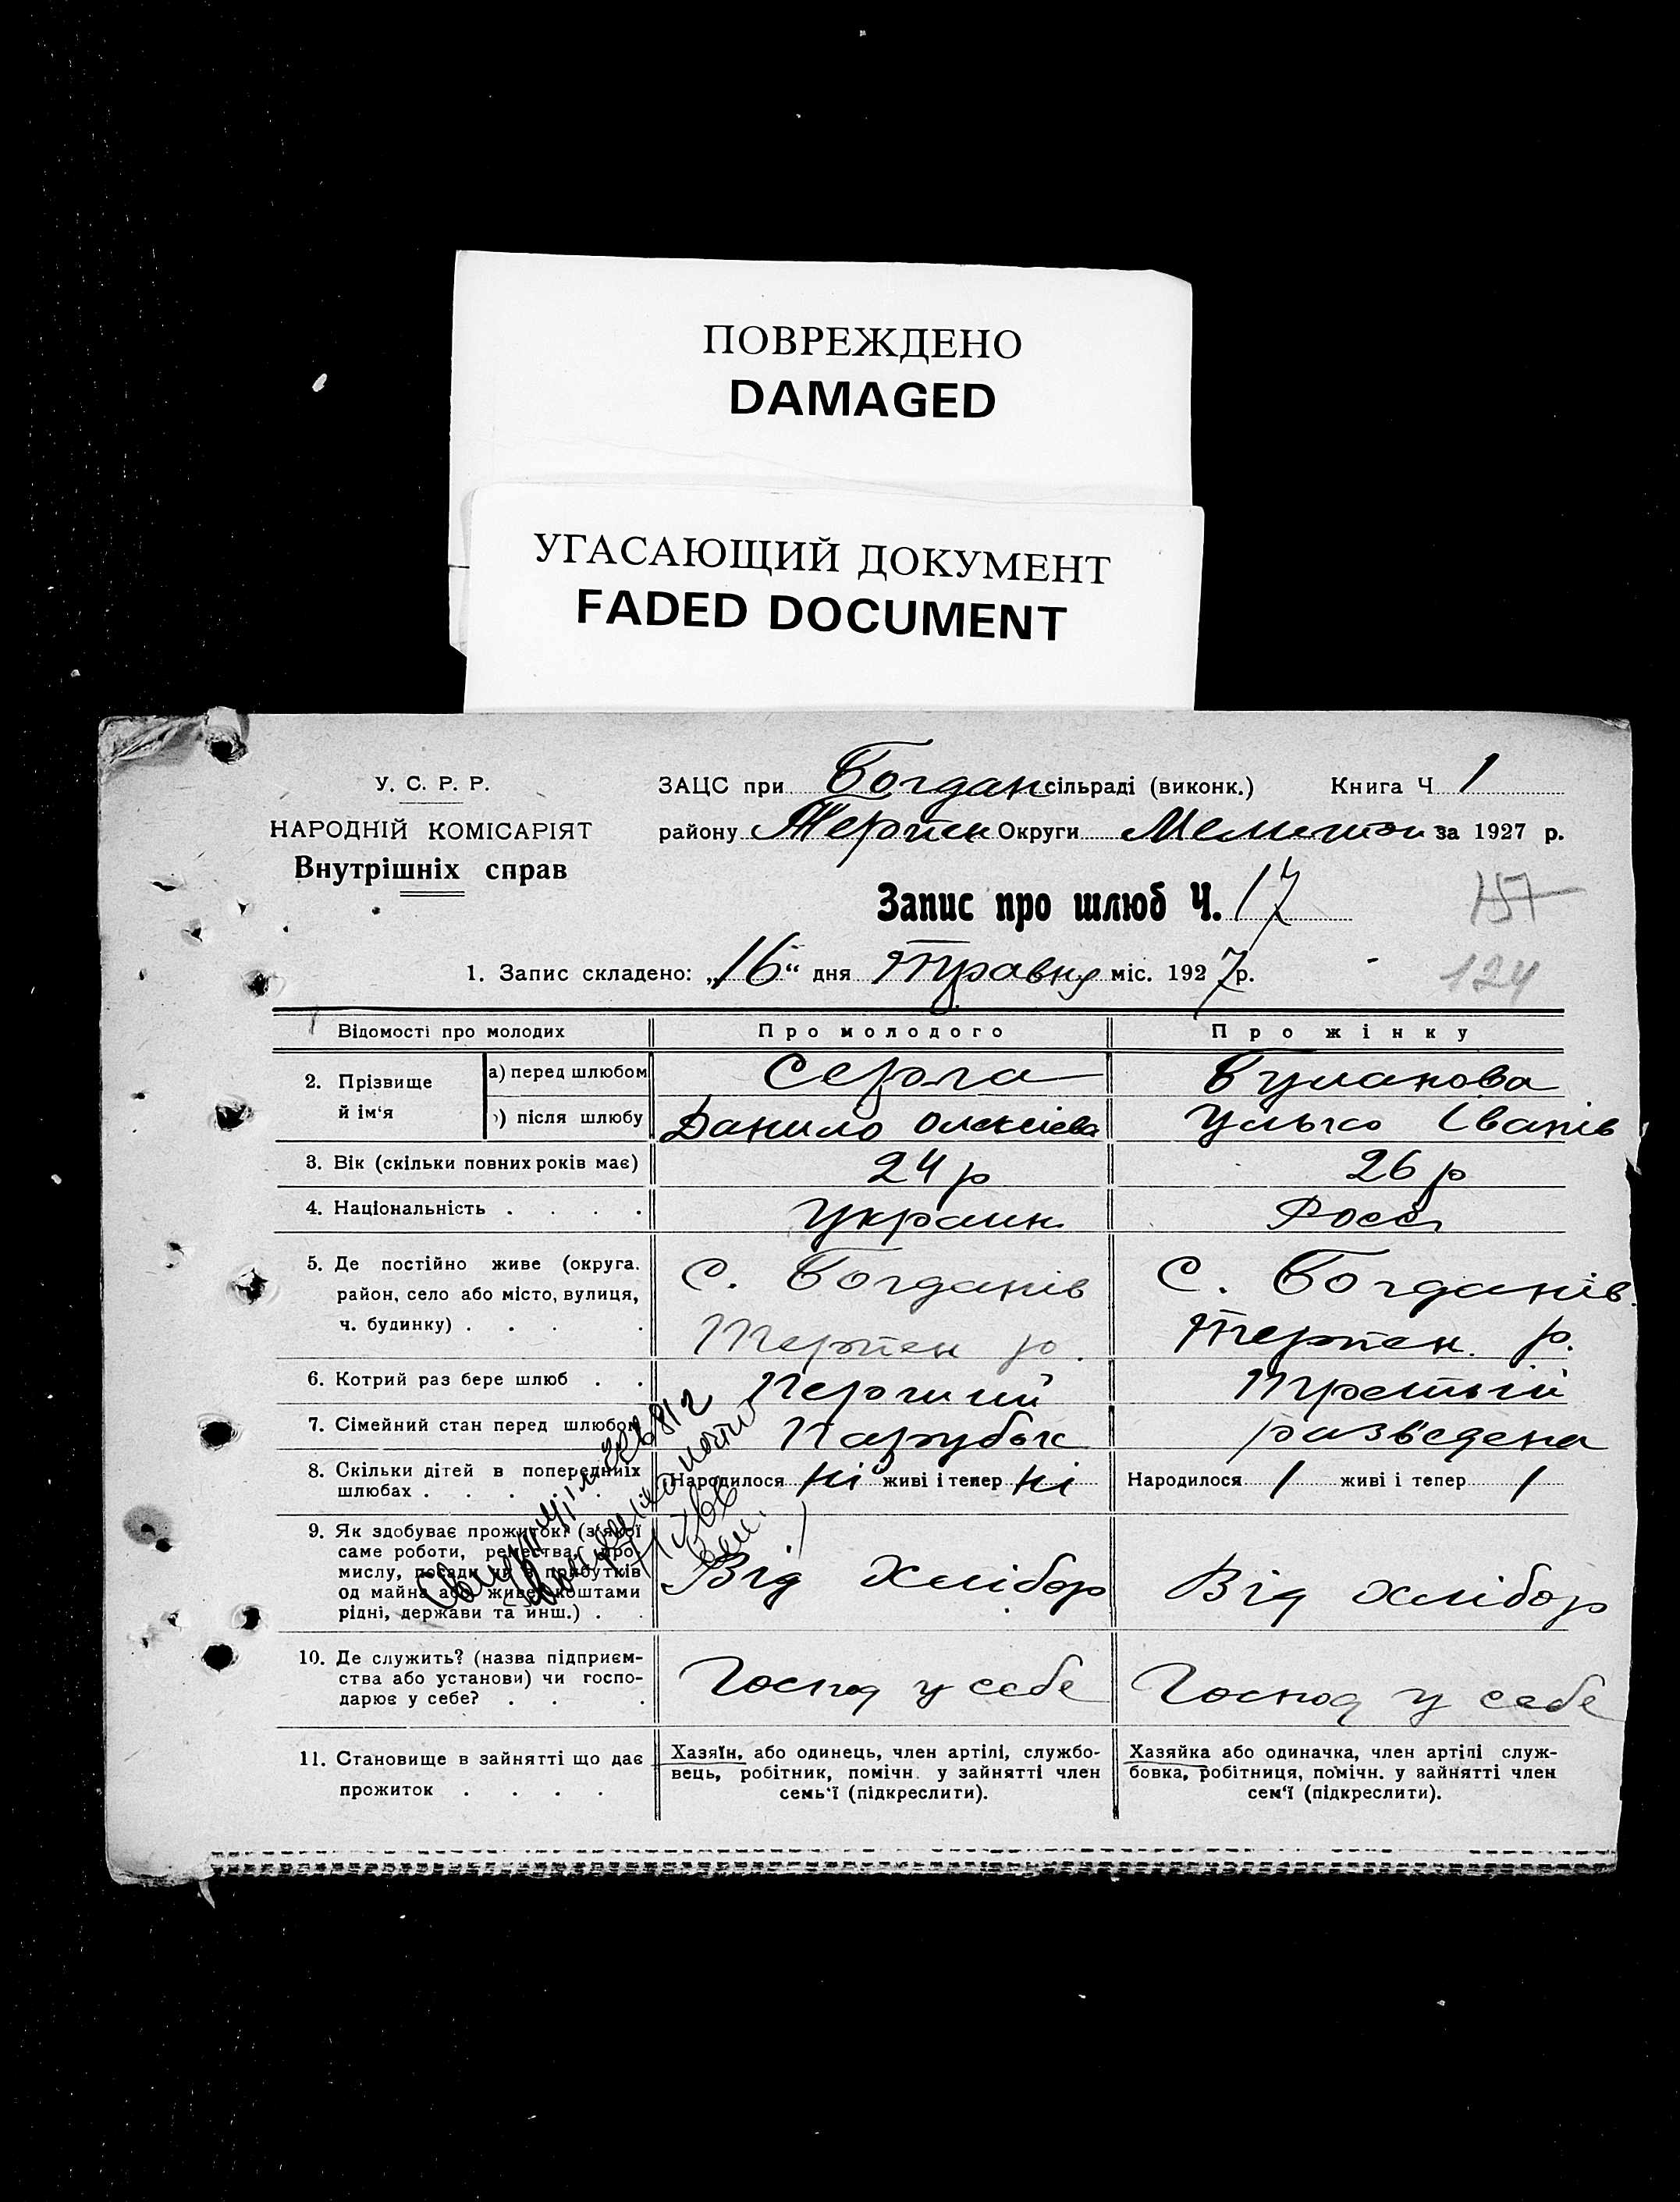 ПОВРЕЖДЕНО
DAMAGED
УГАСАЮЩИЙ ДОКУМЕНТ
FADED DOCUMENT
У. С. Р. Р.
НАРОДНІЙ КОМІСАРІЯТ
Внутрішніх справ
ЗАЦС при Богдан сільраді (виконк.) Книга Ч 1
району Терпен Округи Мелитоп за 1927 р.
Запис про шлюб Ч. 17
157
1. Запис складено: „16“ дня Травня міс. 1927 р.
124
Відомості про молодих Про молодого Про жінку
2. Прізвище й ім‘я а) перед шлюбом Серга Буланова
б) після шлюбу Данило Олексієв Іванів
3. Вік (скільки повних років має) 24 р 26 р
4. Національність . . . . Украин. Росс
5. Де постійно живе (округа. район, село або місто, вулиця, ч. будинку) . . . .
С. Богданів С. Богданів.
Терпен р. Терпен. р.
6. Котрий раз бере шлюб . . Перший Третьій
7. Сімейний стан перед шлюбом Парубок разведена
8. Скільки дітей в попередниіх шлюбах . . . . Народилося ні живі і тепер ні Народилося 1 живі і тепер 1
9. Як здобуває прожиток? (з якої
саме роботи, ремества, про-
мислу, посади чи з прибутків
од майна або живе коштами
рідні, держави та инш.) . .
Від хлібор Від хлібор
10. Де служить? (назва підприєм-
ства або установи) чи госпо-
дарює у себе? . . .
Господ у себе Господ у себе
11. Становище в зайнятті що дає
прожиток . . . .
Хазяїн, або одинець, член артілі, службо-
вець, робітник, помічн. у зайнятті член
семь‘ї (підкреслити).
Хазяйка або одиначка, член артілі служ-
бовка, робітниця, помічн. у зайнятті член
сем‘ї (підкреслити).